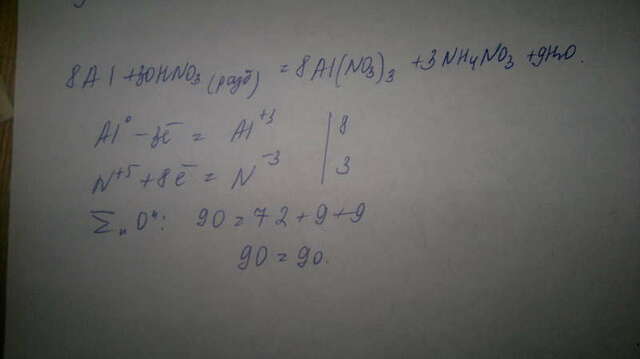 8Al + 30HNO₃ (разб) = 8Al(NO₃)₃ + 3NH₄NO₃ + 9H₂O.
Al⁰ - 3e̅ = Al⁺³ | 8
N⁺⁵ + 8e̅ = N⁻³ | 3
Σ "O": 90 = 72 + 9 + 9
90 = 90.